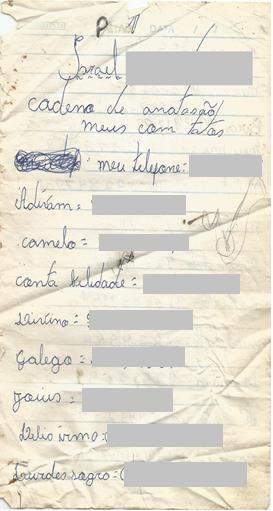 Israel
caderno de anatasão
meus com tatos
meu telefone=
Adiram=
camelo=
conta bilidade=
Divino=
Galego=
Joius=
Délio irmo=
Lourdes sogro=